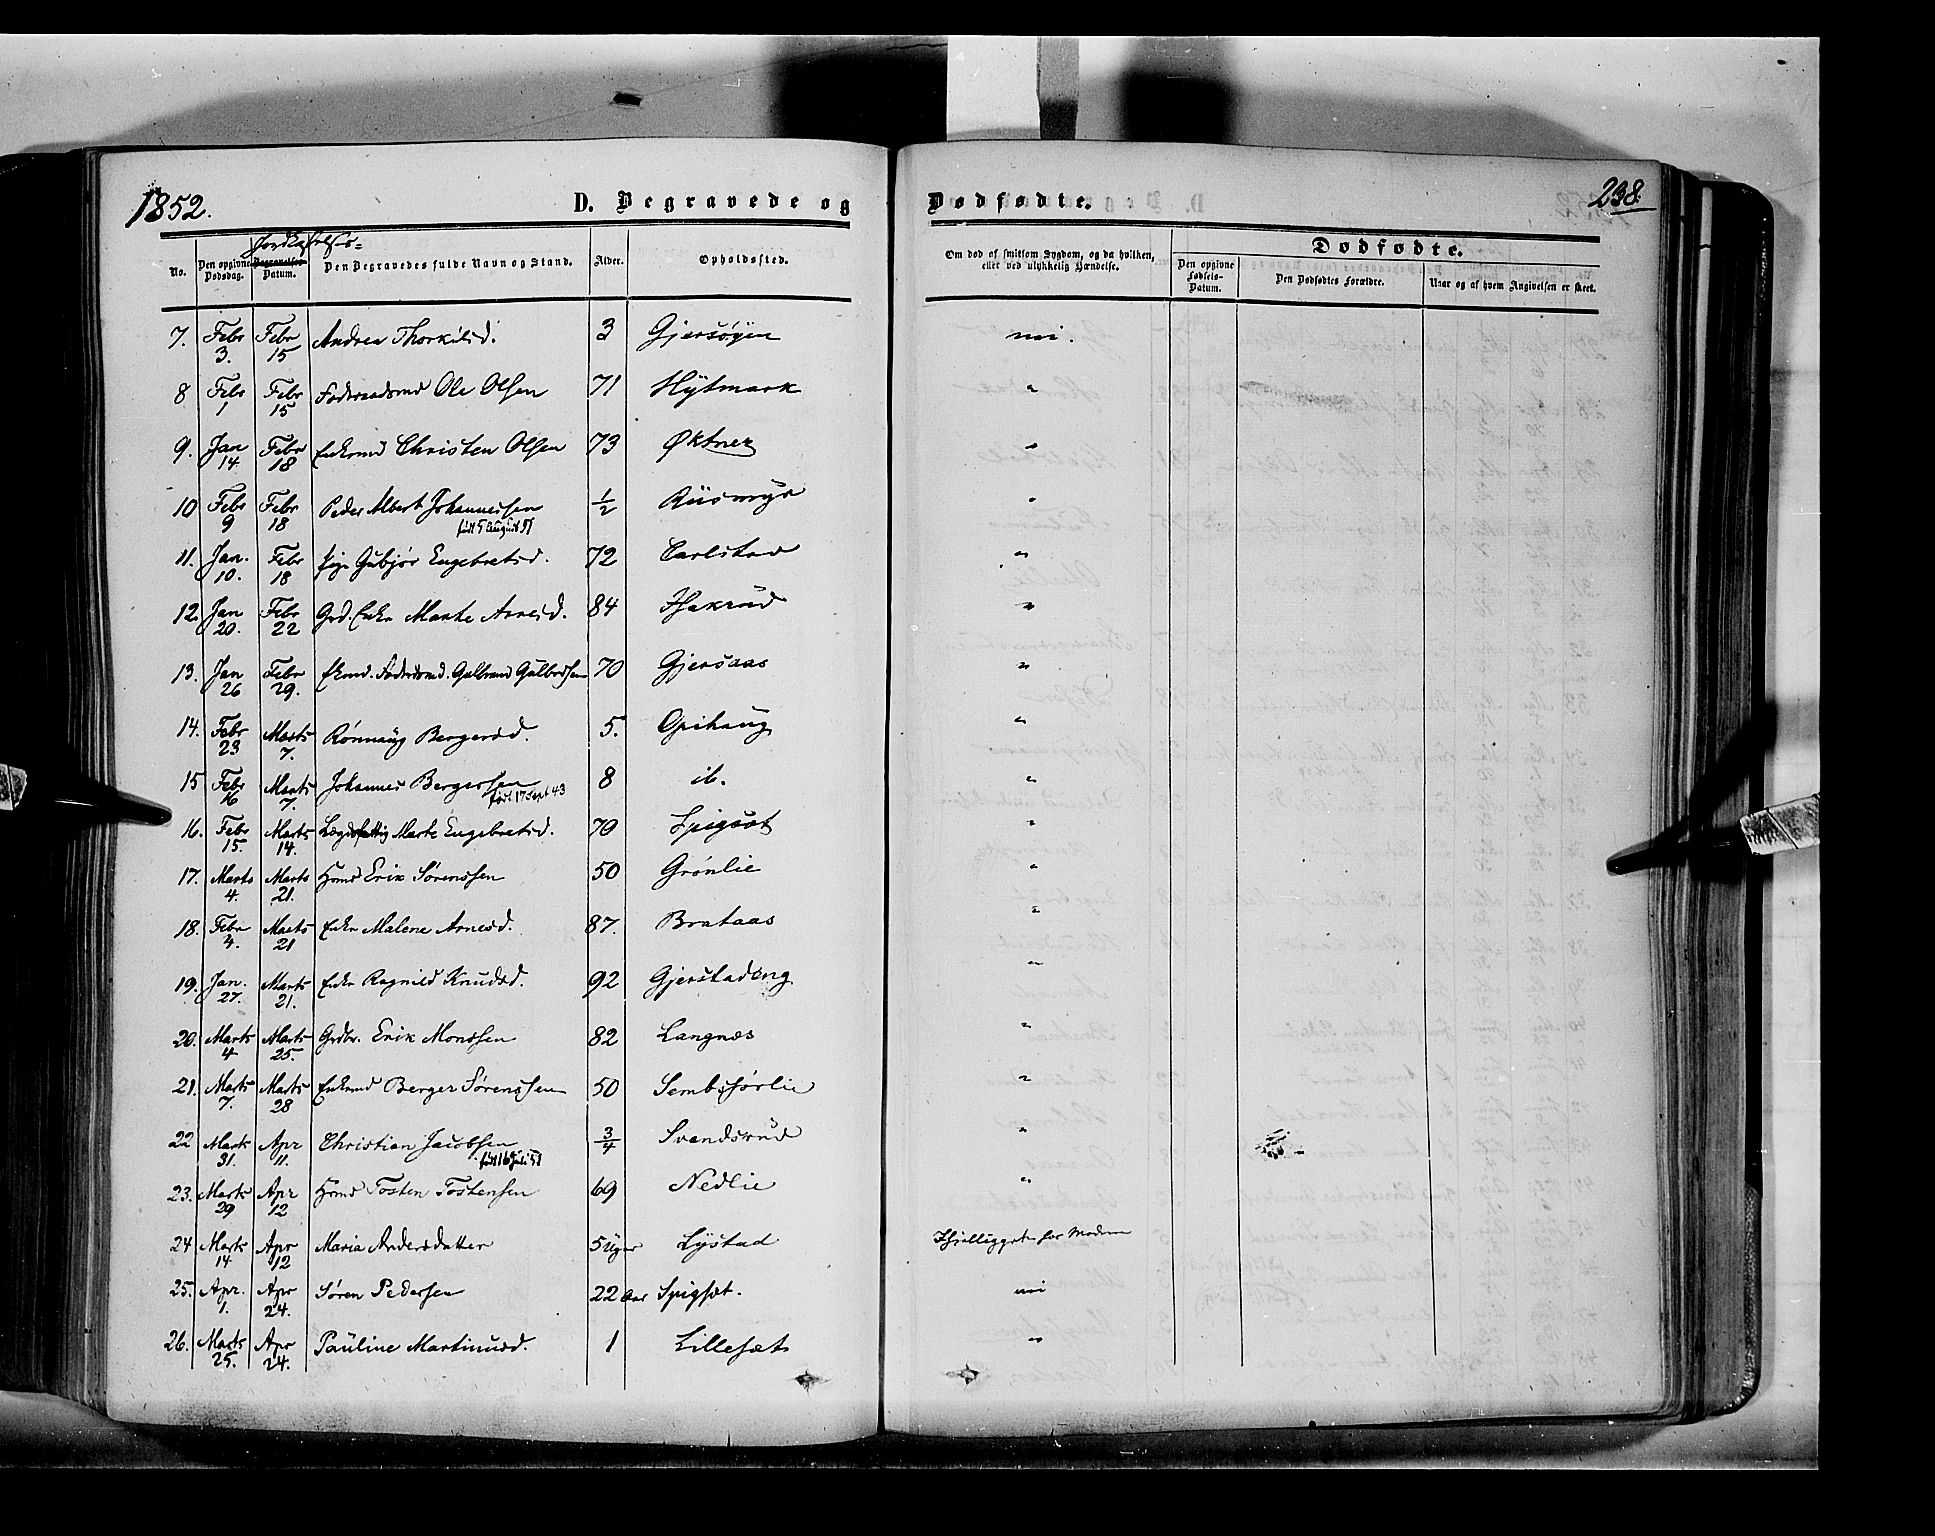 1852.
D. Begravede og Dødfødte.
238.
No.
Den opgivne Dødsdag.
Jordkastelses=
Begravelses Datum.
Den Begravedes fulde Navn og Stand.
Alder.
Opholdssted.
Om død af smitsom Sygdom, og da hvilken, eller ved ulykkelig Hændelse.
Dødfødte.
Den opgivne Fødsels-Datum.
Den Dødfødtes Forældre.
Naar og af hvem Angivelsen er skeet.
7. Febr 3. Febr 15 Andrea Thorkilsd. 3 Gjersøyen nei.
8 Febr 1 Febr 15 Føderaadsmd Ole Olsen 71 Hÿtmark "
9. Jan 14 Febr 18 Enkemd Christen Olsen 73 Øktner "
10 Febr 9 Febr 18 Peder Albert Johannessen ½ Riismyr "
født 5 August 51
11. Jan. 10. Febr 18 Pige Gubjør Engebretsd. 72 Carlstad "
12. Jan 20. Febr 22 Grd. Enke Marthe Arnesd. 84 Hakrud "
13. Jan 26 Febr 29. Gulbrand Gulbrdsen 70 Gjersaas "
14. Febr 23 Marts 7. Rønnaug Bergersd. 5. Opihaug "
15 Febr 16 Marts 7. Johannes Bergersen 8 ib. "
født 17 Sept 43
16. Febr 15. Marts 14. Lægdsfattig Marte Engebretsd. 70 Spigset "
17. Marts 4. Marts 21. Hmd Erik Sørenssen 50 Grønlie "
18. Febr 4. Marts 21 Enke Malene Arnesd. 87. Brataas "
19. Jan. 27. Marts 21. Enke Ragnild Knudsd. 92 Gjerstadeng "
20. Marts 4 Marts 25. Grdbr. Erik Monssen 82 Langnæs "
21. Marts 7. Marts 28 Enkemd Berger Sørenssen 50 Sembsførlie "
22 Marts 31. Apr 11. Christian Jacobsen ¾ Svendsrud "
født 16 Juli 51
23. Marts 29 Apr 12 Hmd Tosten Tostensen 69 Nedlie "
24 Marts 14 Apr 12 Maria Andersdatter 5 Uger Lÿstad Ihjelligget for Modren
25. Apr. 1. Apr 24. Søren Pedersen 22 Aar Spigset. nei
26. Marts 25. Apr 24. Pauline Martinusd. 1 Lillesæt "